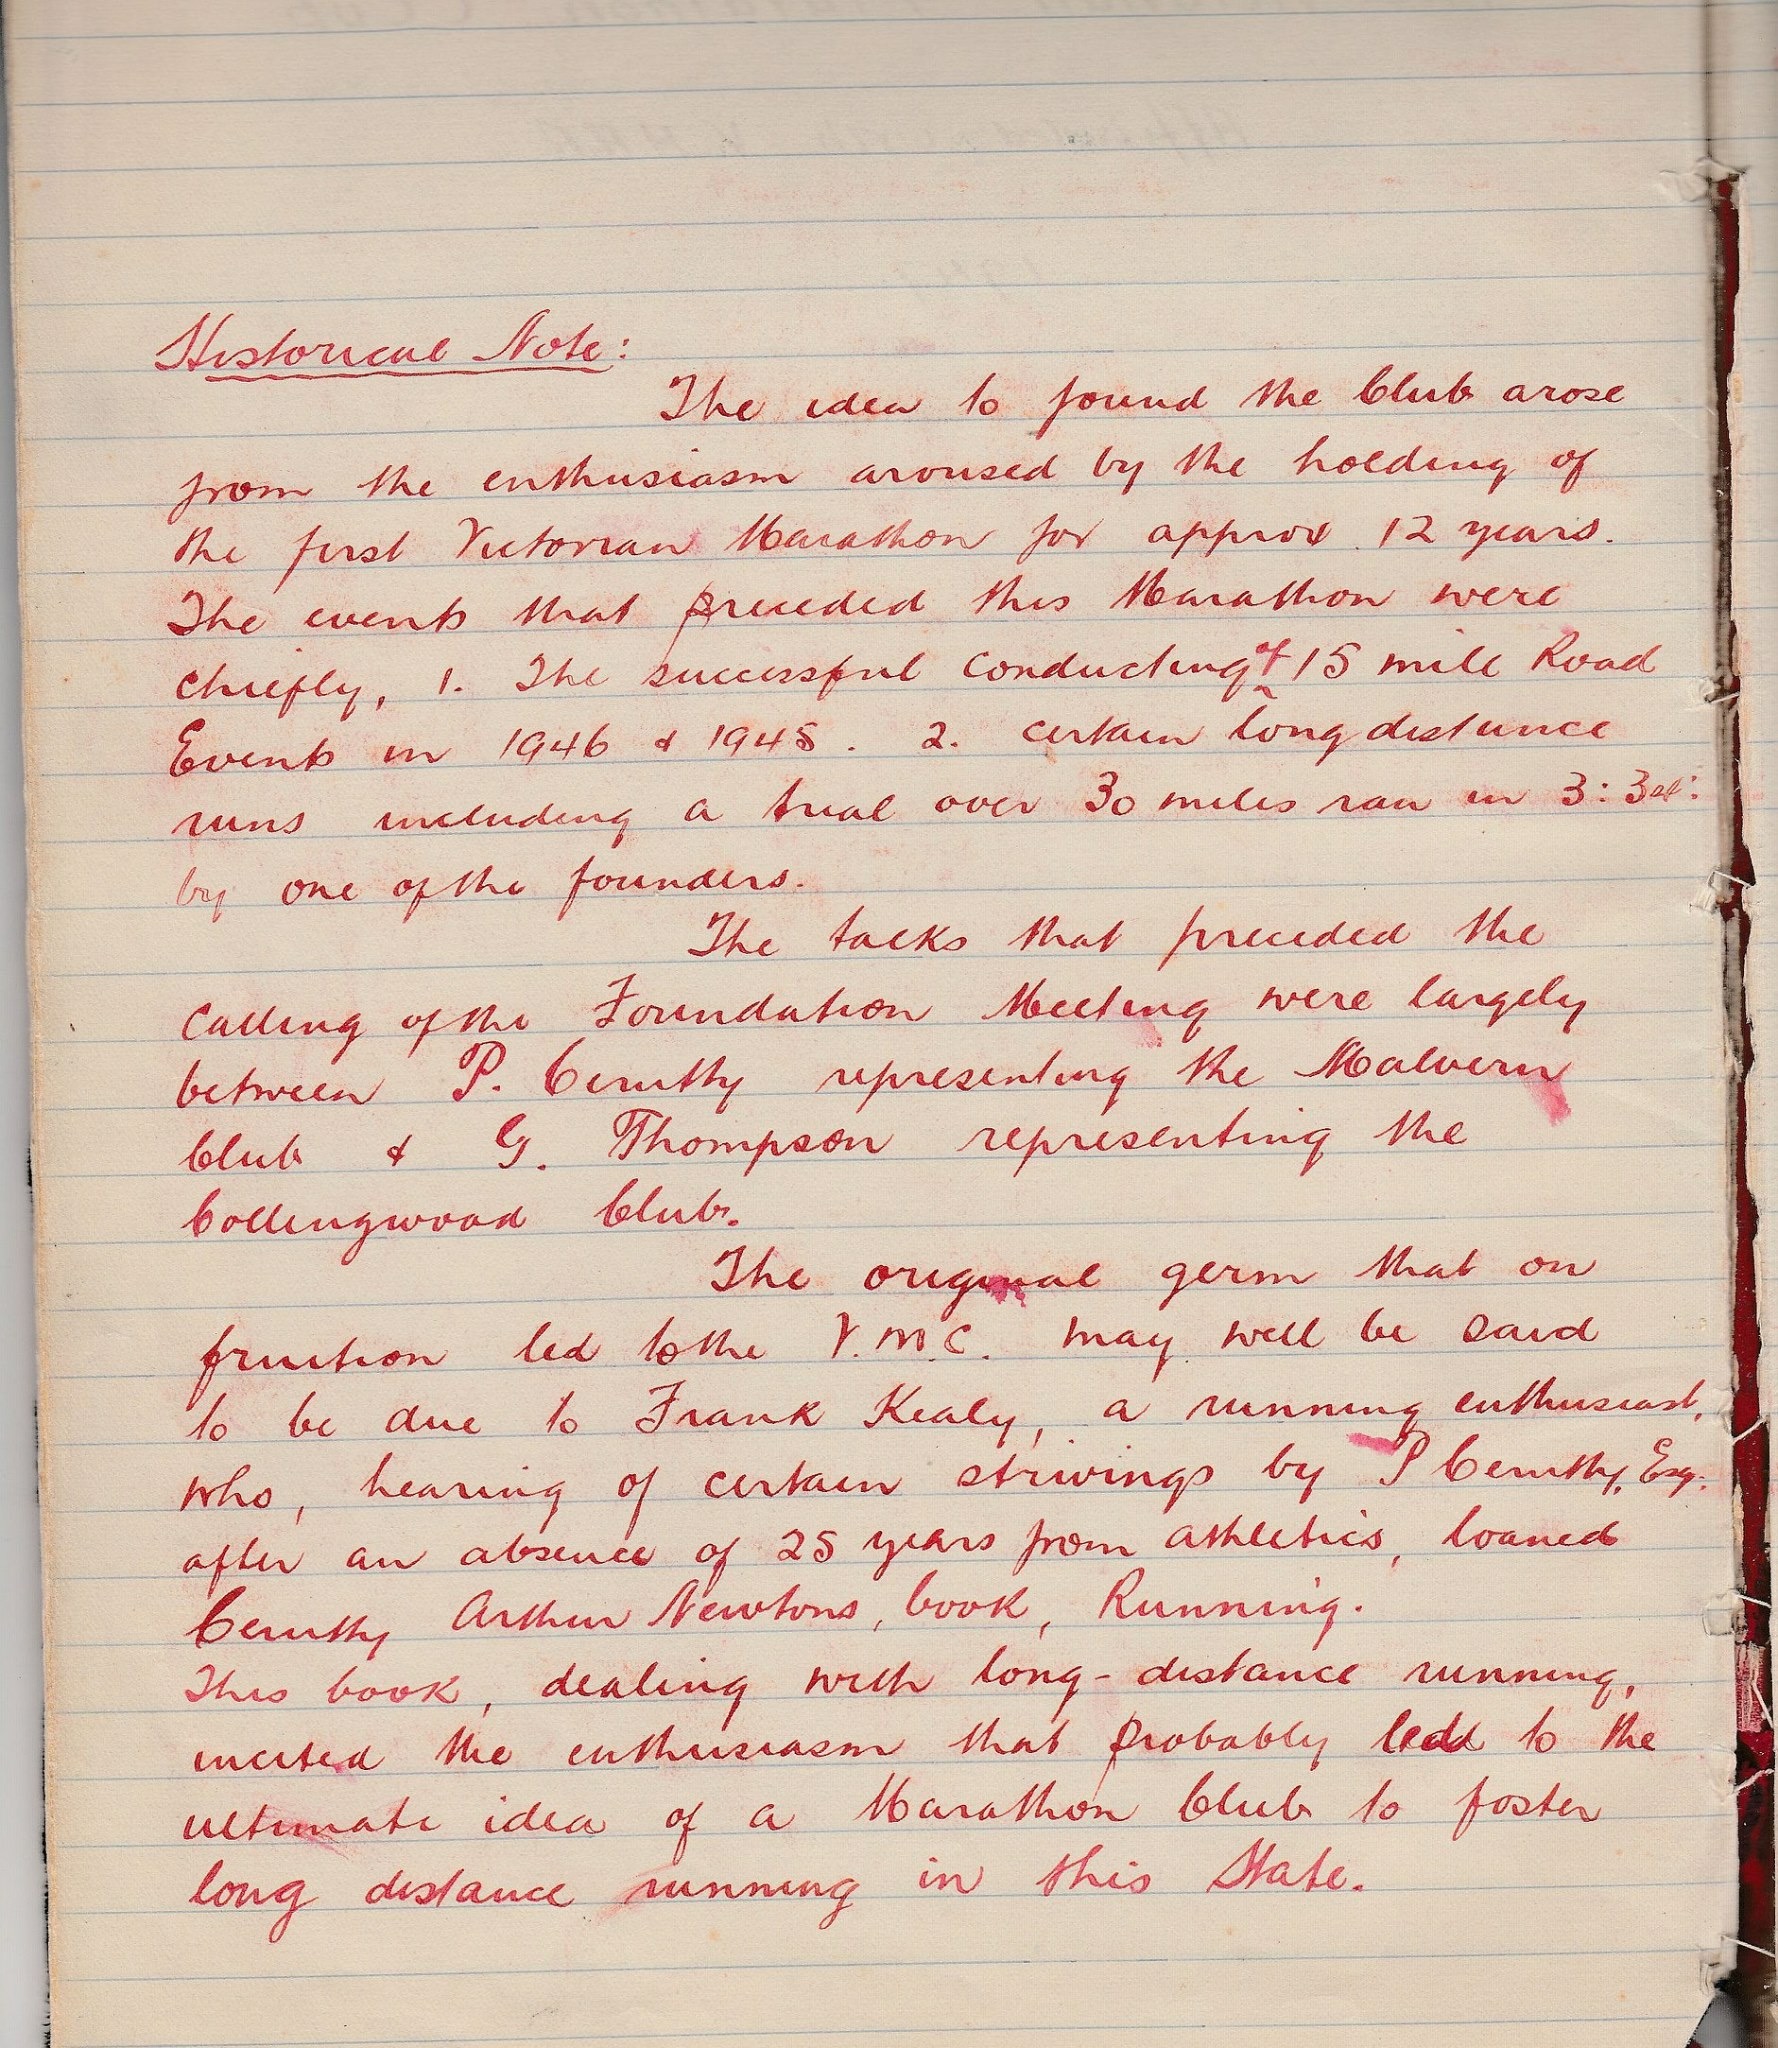 Historical Note:
The idea to found the Club arose
from the enthusiasm aroused by the holding of
the first Victorian Marathon for approx. 12 years.
The events that preceded this Marathon were
chiefly, 1. The successful conducting of 15 mile Road
Events in 1946 & 1945. 2. certain long distance
runs including a trial over 30 miles ran in
by one of the founders.
The talks that preceded the
calling of the Foundation Meeting were largely
between P. Cerutty representing the Malvern
Club & G. Thompson representing the
Collingwood Club.
The original germ that on
fruition led to the V.M.C. may well be said
to be due to Frank Kealy, a running enthusiast,
who, hearing of certain strivings by P Cerutty, Esq.
after an absence of 25 years from athletics, loaned
Cerutty Arthur Newtons, book, Running.
This book, dealing with long-distance running,
incited the enthusiasm that probably led to the
ultimate idea of a Marathon Club to foster
long distance running in this State.